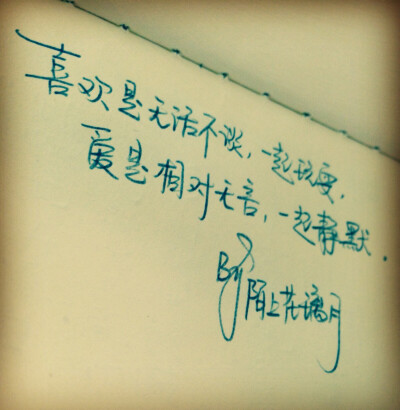 喜欢是无话不谈,一起玩耍,
爱是相对无言,一起静默.
By 陌上花璃月